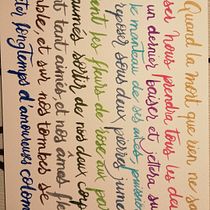 Quand la mort que rien ne
ser nous prendra tous les deu
un dernier baiser et jetera su
le manteau de ses ailes
reposer sous deux pierres jume
ent les fleurs de rose aux par
aumés sortir de nos deux corp
t tant aimés et nos âmes fle
ble, et sur nos tombes se
ter longTemps d'amoureuses colom